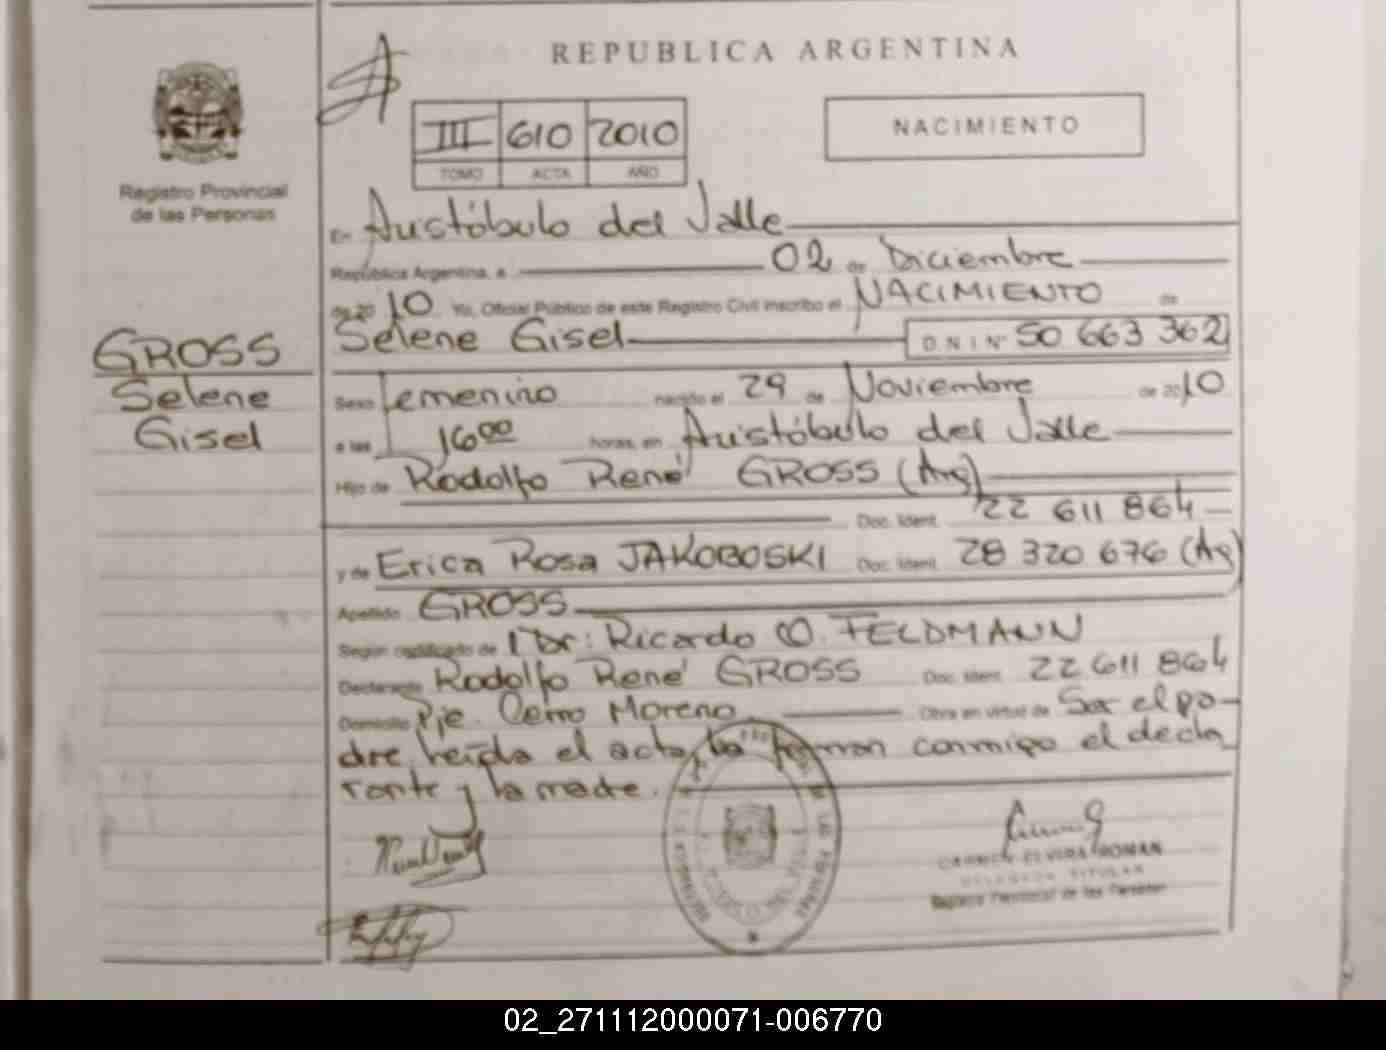 REPUBLICA ARGENTINA
III 610 2010
TOMO ACTA AÑO
NACIMIENTO
Registro Provincial
de las Personas
En Aristóbulo del Valle
República Argentina, a 02 de Diciembre
de 20 10 Yo, Oficial Público de este Registro Civil inscribo el NACIMIENTO de
Selene Gisel D.N.I Nº 50 663 362
GROSS
Selene
Gisel
Sexo Femenino nacido el 29 de Noviembre de 20 10
a las 16 00 horas, en Aristóbulo del Valle
Hijo de Rodolfo René GROSS (Arg)
Doc. Ident. 22 611 864
y de Erica Rosa JAKOBOSKI Doc. Ident. 28 320 676 (Arg)
Apellido GROSS
Según certificado de Dr: Ricardo O. FELDMANN
Declarante Rodolfo René GROSS Doc. Ident. 22 611 864
Domicilio Pje. Cerro Moreno Obra en virtud de Ser el pa-
dre, leída el acta la firman conmigo el decla
rante y la madre.
CARMEN ELVIRA ROMAN
DELEGADA TITULAR
Registro Provincial de las Personas
02_271112000071-006770